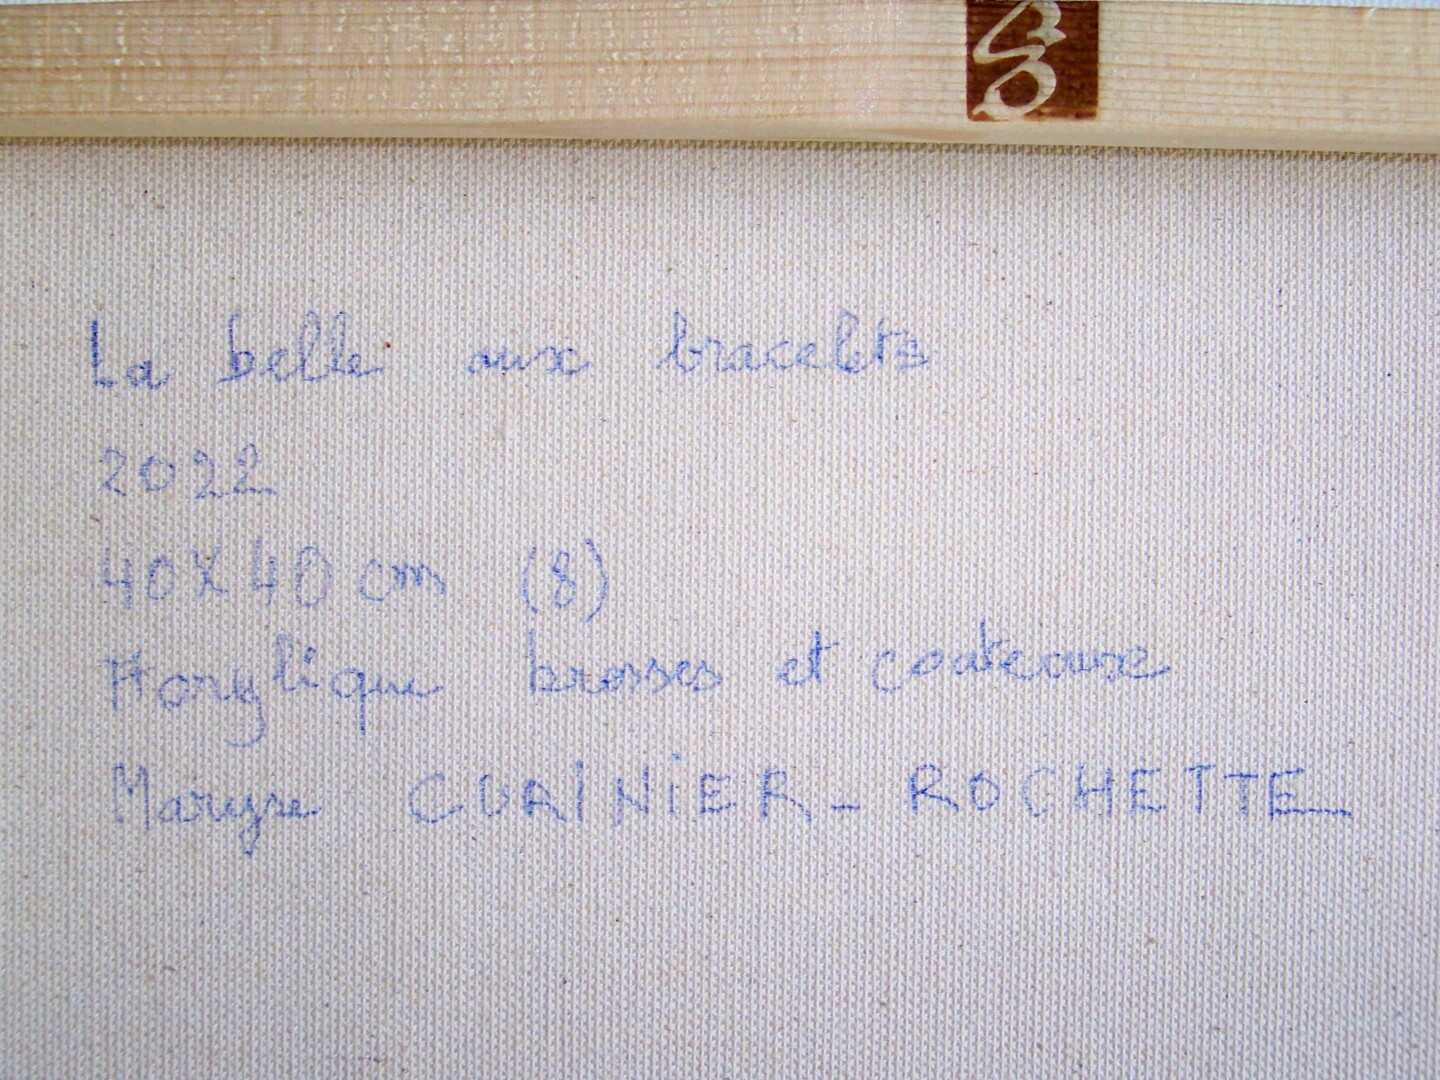 La belle aux bracelets
2022
40X40 cm (8)
Acrylique brosses et couteaux
Maryse CURINIER-ROCHETTE